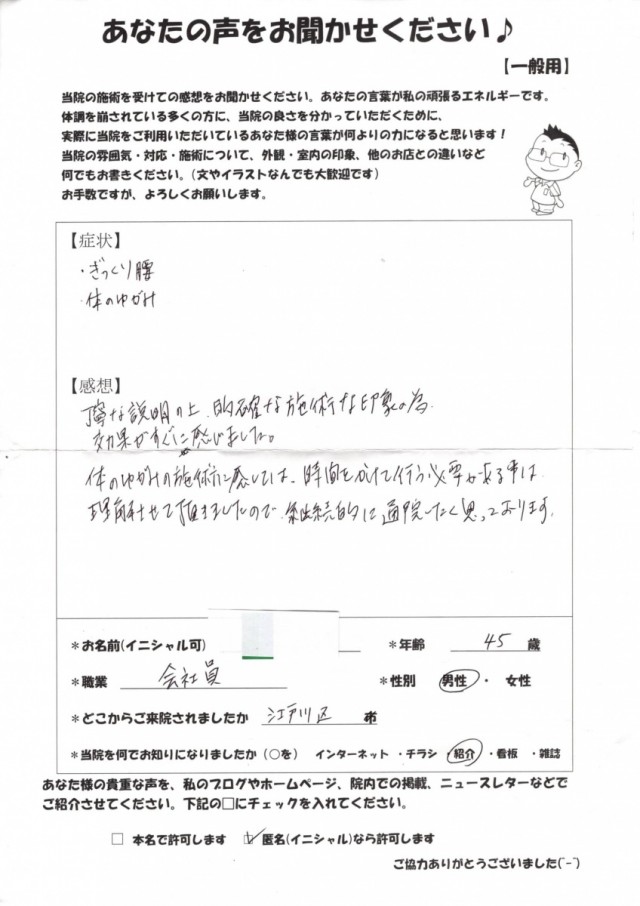 あなたの声をお聞かせください♪
【一般用】
当院の施術を受けての感想をお聞かせください。あなたの言葉が私の頑張るエネルギーです。
体調を崩されている多くの方に、当院の良さを分かっていただくために、
実際に当院をご利用いただいているあなた様の言葉が何よりの力になると思います！
当院の雰囲気・対応・施術について、外観・室内の印象、他のお店との違いなど
何でもお書きください。（文やイラストなんでも大歓迎です）
お手数ですが、よろしくお願いします。
【症状】
・ぎっくり腰
・体のゆがみ
【感想】
丁寧な説明の上、的確な施術な印象の為
効果がすぐに感じました。
体のゆがみの施術に感しては、時間をかけて行う必要がある事は
理解させて頂きましたので、継続的に通院したく思っております。
*お名前(イニシャル可)
*年齢 45 歳
*職業 会社員
*性別 男性・女性
*どこからご来院されましたか 江戸川区 市
*当院を何でお知りになりましたか（○を） インターネット・チラシ・紹介・看板・雑誌
あなた様の貴重な声を、私のブログやホームページ、院内での掲載、ニュースレターなどで
ご紹介させてください。下記の□にチェックを入れてください。
□ 本名で許可します ☑ 匿名(イニシャル)なら許可します
ご協力ありがとうございました(^-^)